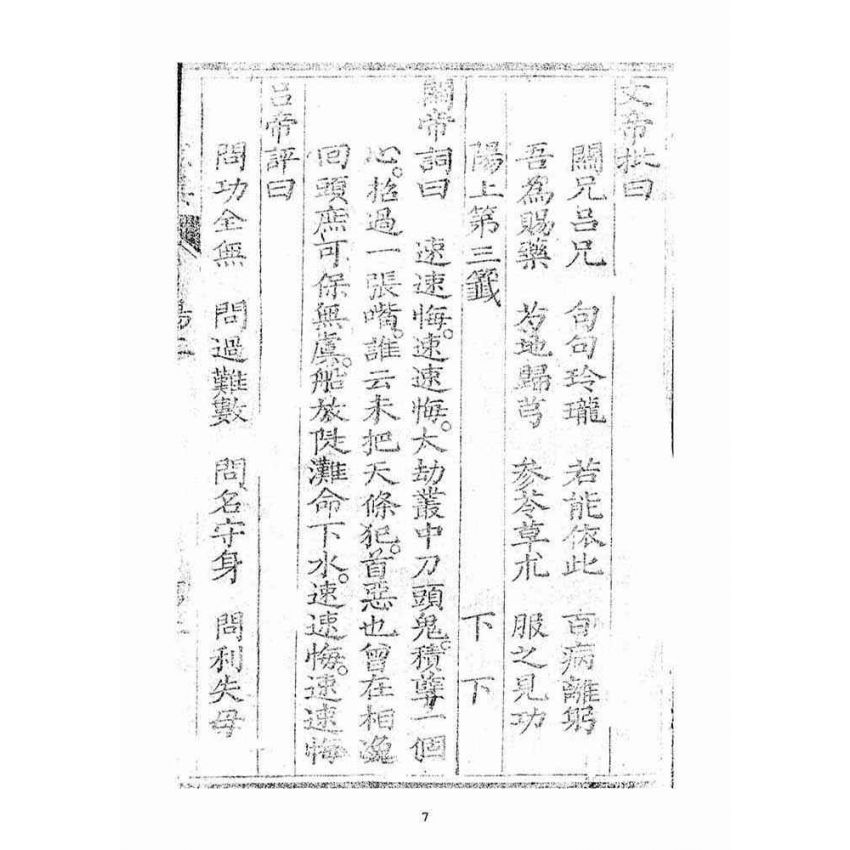 文帝批曰
關兄呂兄 句句玲瓏 若能依此 百病離躬
吾為賜藥 芍地歸芎 參苓草朮 服之見功
陽上第三籤 下下
關帝詞曰 速速悔。速速悔。大劫叢中刀頭鬼。積孽一個
心。招過一張嘴。誰云未把天條犯。首惡也曾在相逸
回頭庶可保無虞。船放陡灘命下水。速速悔。速速悔
呂帝評曰
問功全無 問過難數 問名守身 問利失母
7